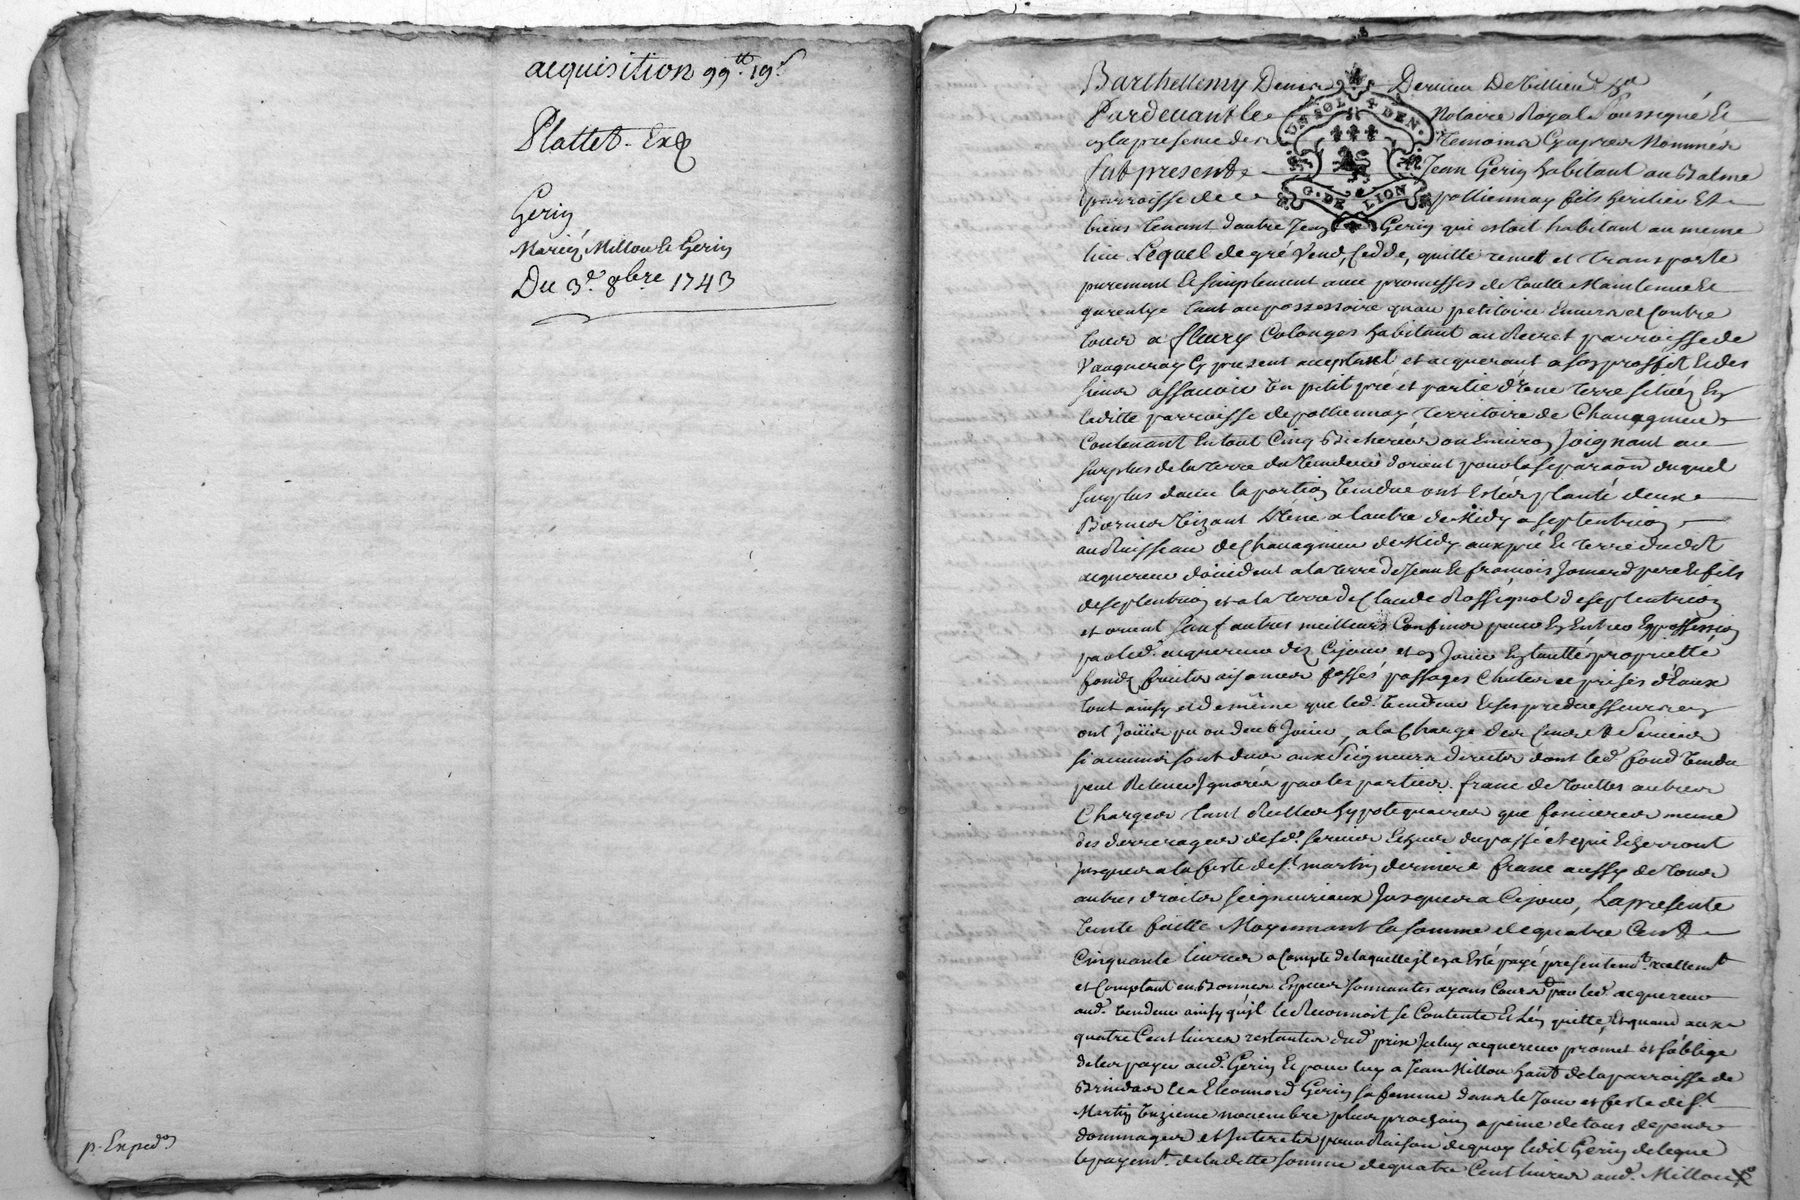 acquisition 99tt 19s
Plattet Exp
Gerin
Mariés Millou et Gerin
Du 3e 8bre 1743
p. Exped
Barthellemy Denis Dervieu De Villieu
UN SOL 4 DEN.
G. DE LION
Pardevant le Notaire Royal soussigné Et
en la presence des Temoins Cy apres Nommés
fut present Jean Gerin habitant au Balme
parroisse de pollionnay fils heritier Et
biens tenant d'autre Jean Gerin qui estoit habitant au meme
lieu Lequel de gré Vend, Cedde, quitte remet et transporte
purement Et simplement avec promesses de toutte Maintenue Et
garentye tant au possessoire qu'au petitoire Envers et Contre
tous a fleury Colonges habitant au parroisse de
Vaugneray Cy present acceptant et acquerant a son proffit Et des
siens assavoir Un petit pré et partie d'Une terre situés En
laditte parroisse de pollionnay territoire de Chanagnieu
Contenant En tout Cinq Bicherées ou Environ Joignant au
surplus de la terre du Vendeur d'orient pour la separaon duquel
surplus d'avec la portion Vendue ont Estés planté deux
Bornes Vizant L'Une a l'autre de Midy a septentrion
au Ruisseau de Chanagnieu de Midy aux pré Et terre dudit
acquereur d'occident a la terre de Jean Et francois Jomard pere Et fils
de septentrion et a la terre de Claude Rossignol de septentrion
et orient sauf autres meilleurs Confins pour En Entrer En possession
par led. acquereur dez Cejour et en Jouir En toutte proprietté
fonds fruits aisances fossés passages Chutes et prises d'Eaux
tout ainsy et de même que led. Vendeur Et ses predecesseurs en
ont Joüis pu ou deub Jouir, a la Charge des Cens & Servis
si aucuns sont dus aux Seigneurs directes dont led. fond Vendu
peut Relever Ignorés par les parties. franc de touttes autres
Charges tant Reelles hypotequaires que foncieres meme
des arrerages desd. servis Echus du passé et qui Echerront
Jusques a la feste de st. martin derniere franc aussy de tous
autres droits seigneuriaux Jusques a Cejour, La presente
Vente faitte Moyennant la somme de quatre Cent
Cinquante livres a Compte de laquelle il en a Esté payé presentemt. reellemt.
et Comptant en Bonnes Especes sonnantes ayans Cours par led. acquereur
aud. Vendeur ainsy qu'il le Reconnoit se Contente Et L'en quitte, Et quand aux
quatre Cent livres restantes dud. prix Iceluy acquereur promet et s'oblige
de les payer aud. Gerin Et pour luy a Jean Millou hañt de la parroisse de
Brindas Et a Eleonnord Gerin sa femme dans le Jour et feste de st.
Martin Unzieme novembre plus prochain a peine de tous depens
dommages et Interets pour Raison de quoy ledit Gerin delegue
le payemt. de laditte somme de quatre Cent livres aud. Millou